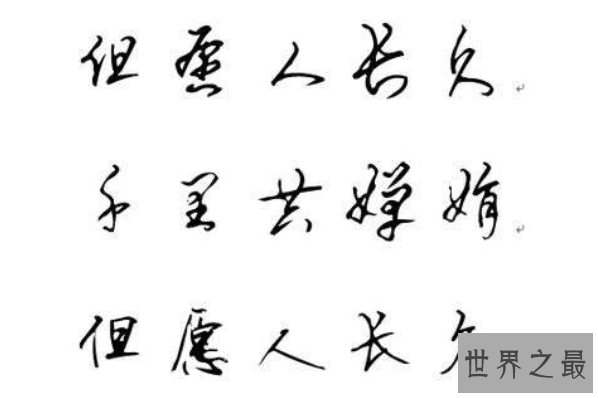 但愿人长久
千里共婵娟
但愿人长久
世界之最